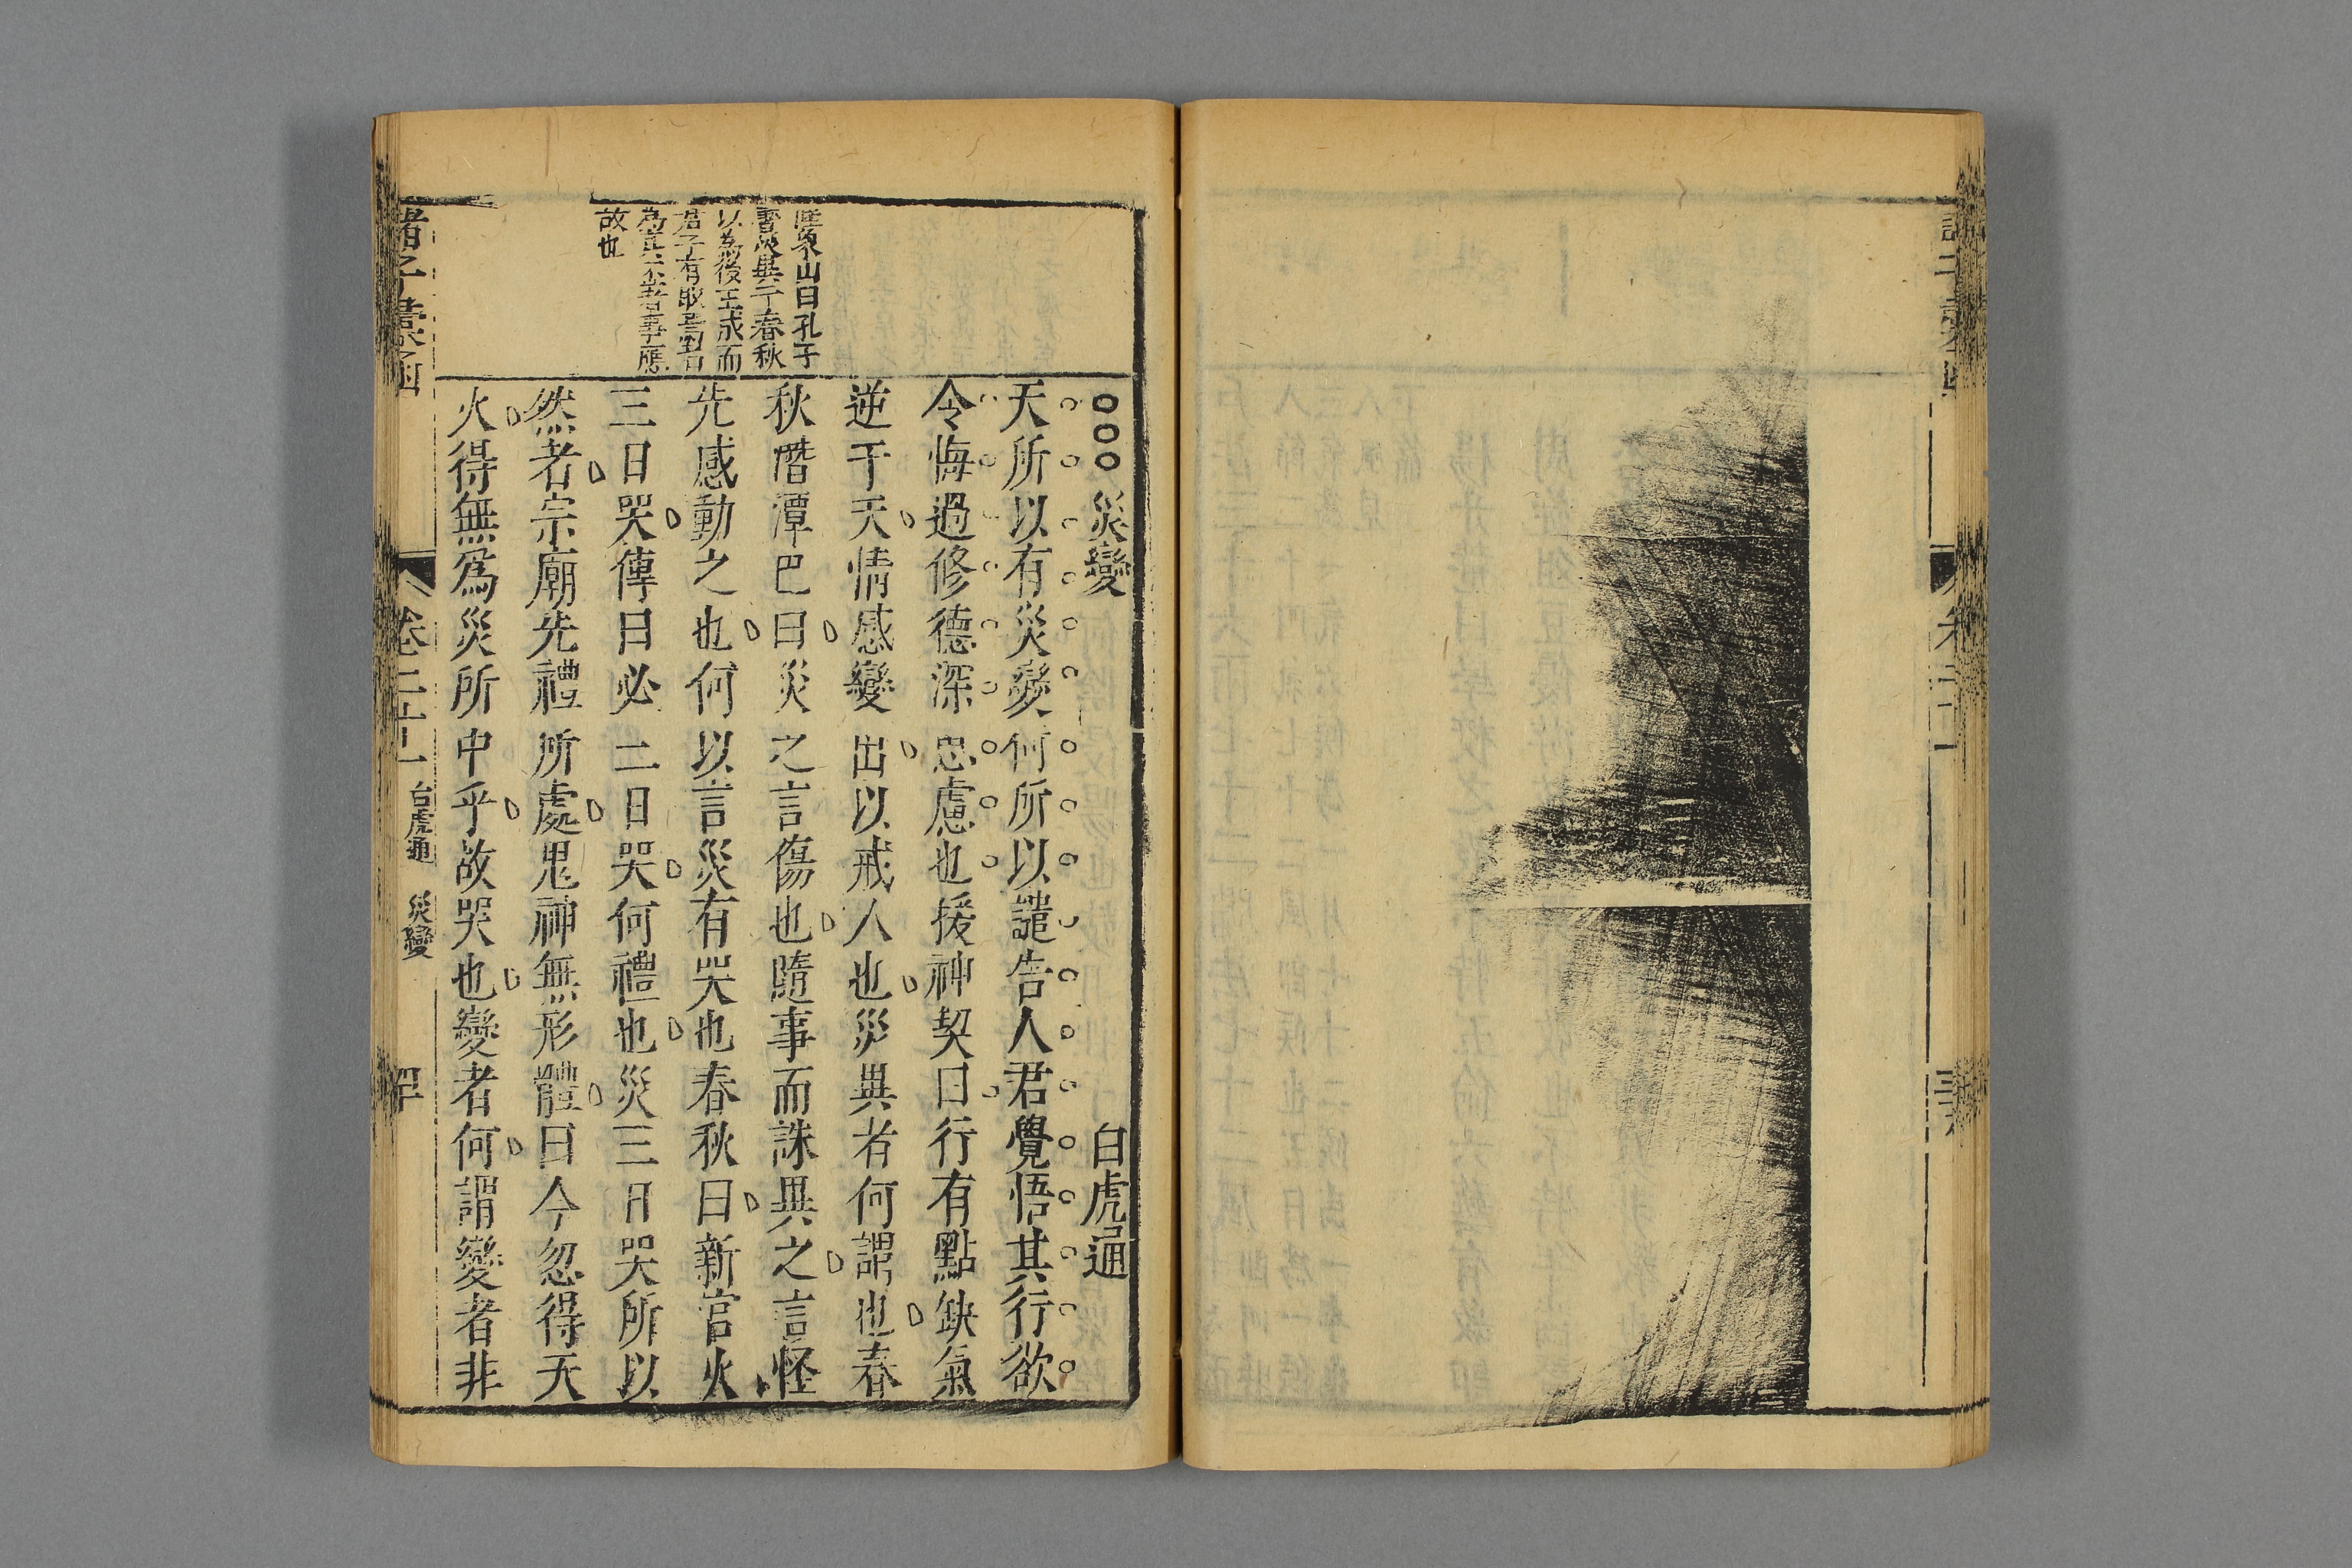 災變　白虎通
天所以有災變何所以譴告人君覺悟其行欲
令悔過修德深思慮也援神契曰行有點缺氣
逆于天情感變出以戒人也災異者何謂也春
秋潛潭巴曰災之言傷也隨事而誅異之言怪
先感動之也何以言災有哭也春秋曰新宮火
三日哭傳曰必三日哭何禮也災三日哭所以
然者宗廟先禮所處鬼神無形體曰今忽得天
火得無為災所中乎故哭也變者何謂變者非
陸象山曰孔子
書災異于春秋
以為後王戒而
君子有取焉者
為其不著事應
故也
諸子彙函
卷二十一
白虎通　災變